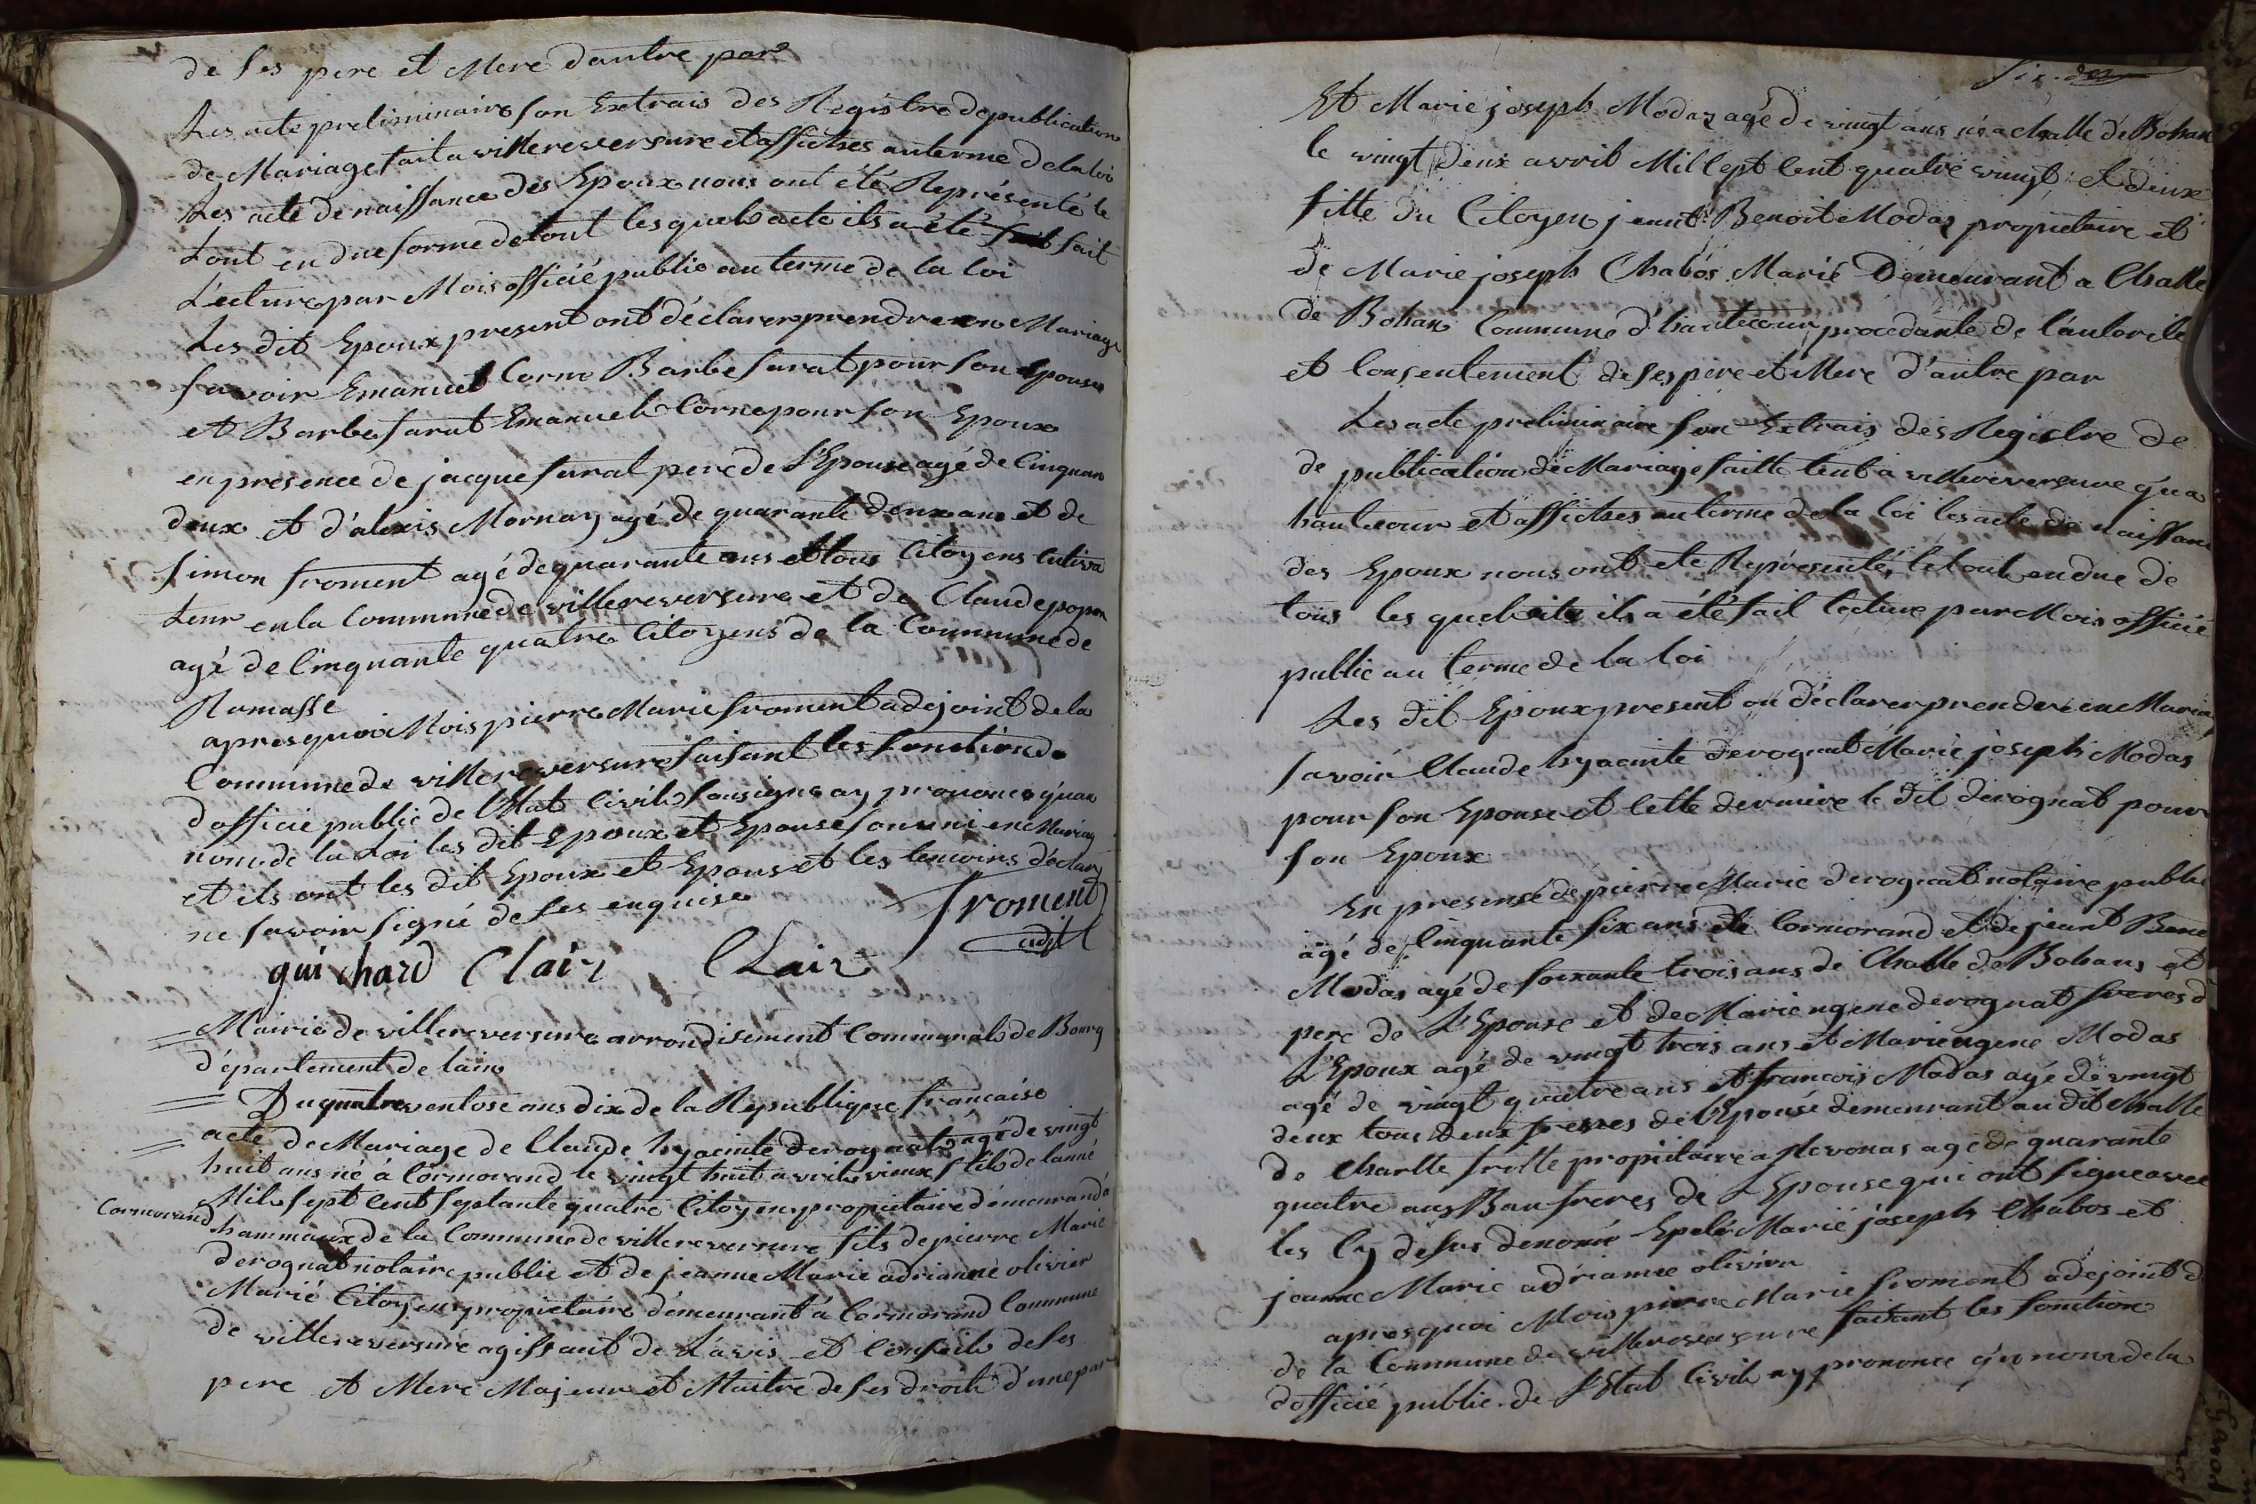 de ses pere et Mere d'autre part
Les acte preliminaire son Extrais des Registre de publication
de Mariage fait a villereversure et affiches au terme de la loi
Les acte de naissance des Epoux nous ont été Représenté le
tout en due forme de tout les quels acte ils a été fait
Lecture par Mois officié public au terme de la loi
Les dit Epoux present ont déclarer prendre en Mariage
savoir Emanuel Corne Barbe surat pour son Epouse
et Barbe surat Emanuel Corne pour son Epoux
en presence de jacque surat pere de L'Epouse agé de Cinquan
deux et d'alexis Mornay agé de quarante deux ans et de
simon froment agé de quarante ans et tous Citoyens cutiva
teur en la Commune de villereversure et de Claude
agé de Cinquante quatre Citoyens de la Commune de
Ramasse
apres quoi Mois pierre Marie froment adejoint de la
Commune de villereversure faisant les fonctions de
d'officié public de l'Etat Civil sousigne ay prononce qu'au
nom de la Loi les dit Epoux et Epouse son uni en Mariag
et ils ont les dit Epoux et Epouse et les temoins déclare
ne savoir signé de ses enquise
froment
adjt
guichard Clair Clair
Mairie de villereversure arrondisement Communal de Bourg
département de lain
Du quatre ventose ans dix de la Republique francaise
acte de Mariage de Claude hyacinte derognat agé de vingt
huit ans né à Cormorand le vingt huit avril vieux stile de lanné
Mil sept cent septante quatre Citoyen propriétaire démeurand à
Cormorand hammaux de la Commune de villereversure fils de pierre Marie
derognat notaire public et de jeanne Marie adrianne olivier
Marié Citoyens propietaire démeurant à Cormorand Commune
de villereversure agissant de L'avis et Conseils de ses
pere et Mere Majeur et Maitre de ses droits d'une par
six
Et Marie joseph Modas agé de vingt ans née a challe de Bohan
le vingt deux avril Mil sept Cent quatre vingt et deux
fille du Citoyen jeant Benoit Modas propriétaire et
de Marie joseph Chabos Marié Démeurant a Challe
de Bohan Commune d'hautecour procedante de l'autorite
et Consentement de ses pere et Mere d'autre par
Les acte preliminaire son Extrais des Registre de
de publication de Mariage faitte tent à villereversure qu'a
hautecour et affiches au terme de la loi les acte de naissan
des Epoux nous ont ete Représenté, le tout en due de
tous les quels acte ils a été fait lecture par Mois officié
public au terme de la loi
Les dit Epoux present on déclarer prendre en Maria
savoir Claude hyacinte derognat Marie joseph Modas
pour son Epouse et Cette derniere le dit derognat pour
son Epoux
En presense de pierre Marie derognat notaire public
agé de Cinquante six ans de Cormorand et de jeant Bene
Modas agé de soixante trois ans de Challe de Bohans et
pere de L'Epouse et de Marie ugene derognat freres d
L'Epoux agé de vingt trois ans et Marie ugene Modas
agé de vingt quatre ans et francois Modas agé de vingt
deux tous deux freres de l'Epouse demeurant au dit Challe
de Charlle frille propietaire a Revonas agé de quarante
quatre ans Bau freres de L'Epouse qui ont signe avec
les Cy desus denomé Epelé Marie joseph Chabos et
jeanne Marie adrianne olivier
apres quoi Mois pierre Marie froment adejoint d
de la Commune de villereversure faitant les fonction
d'officié public de l'Etat Civil ay prononce qu'u nom de la